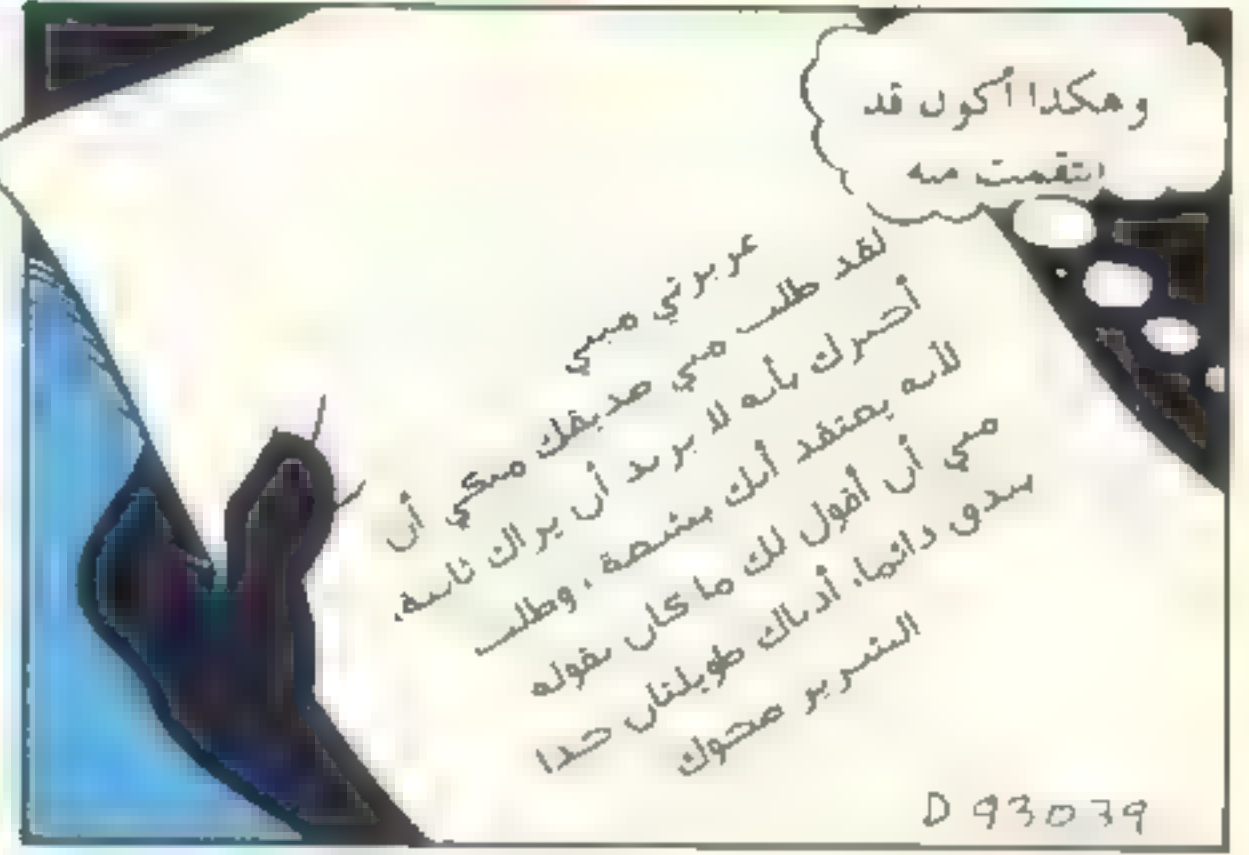 وهكذا أكون قد
انتقمت منه
عزيزتي ميمي
لقد طلب مني صديقك ميكي أن
أخبرك بأنه لا يريد أن يراك ثانية،
لأنه يعتقد أنك بشعة، وطلب
مني أن أقول لك ما كان يقوله
بندق دائما، أذناك طويلتان جدا
الشرير محوك
D 93079